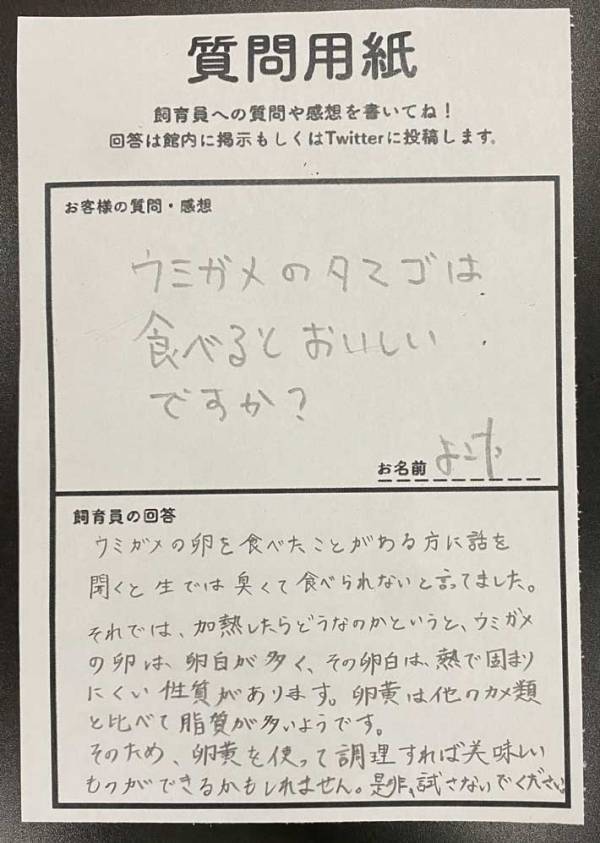 質問用紙
飼育員への質問や感想を書いてね!
回答は館内に掲示もしくはTwitterに投稿します。
お客様の質問・感想
ウミガメのタマゴは
食べるとおいしい
ですか?
お名前
飼育員の回答
ウミガメの卵を食べたことがある方に話を
聞くと生では臭くて食べられないと言ってました。
それでは、加熱したらどうなのかというと、ウミガメ
の卵は、卵白が多く、その卵白は、熱で固まり
にくい性質があります。卵黄は他のカメ類
と比べて脂質が多いようです。
そのため、卵黄を使って調理すれば美味しい
ものができるかもしれません。是非、試さないでください